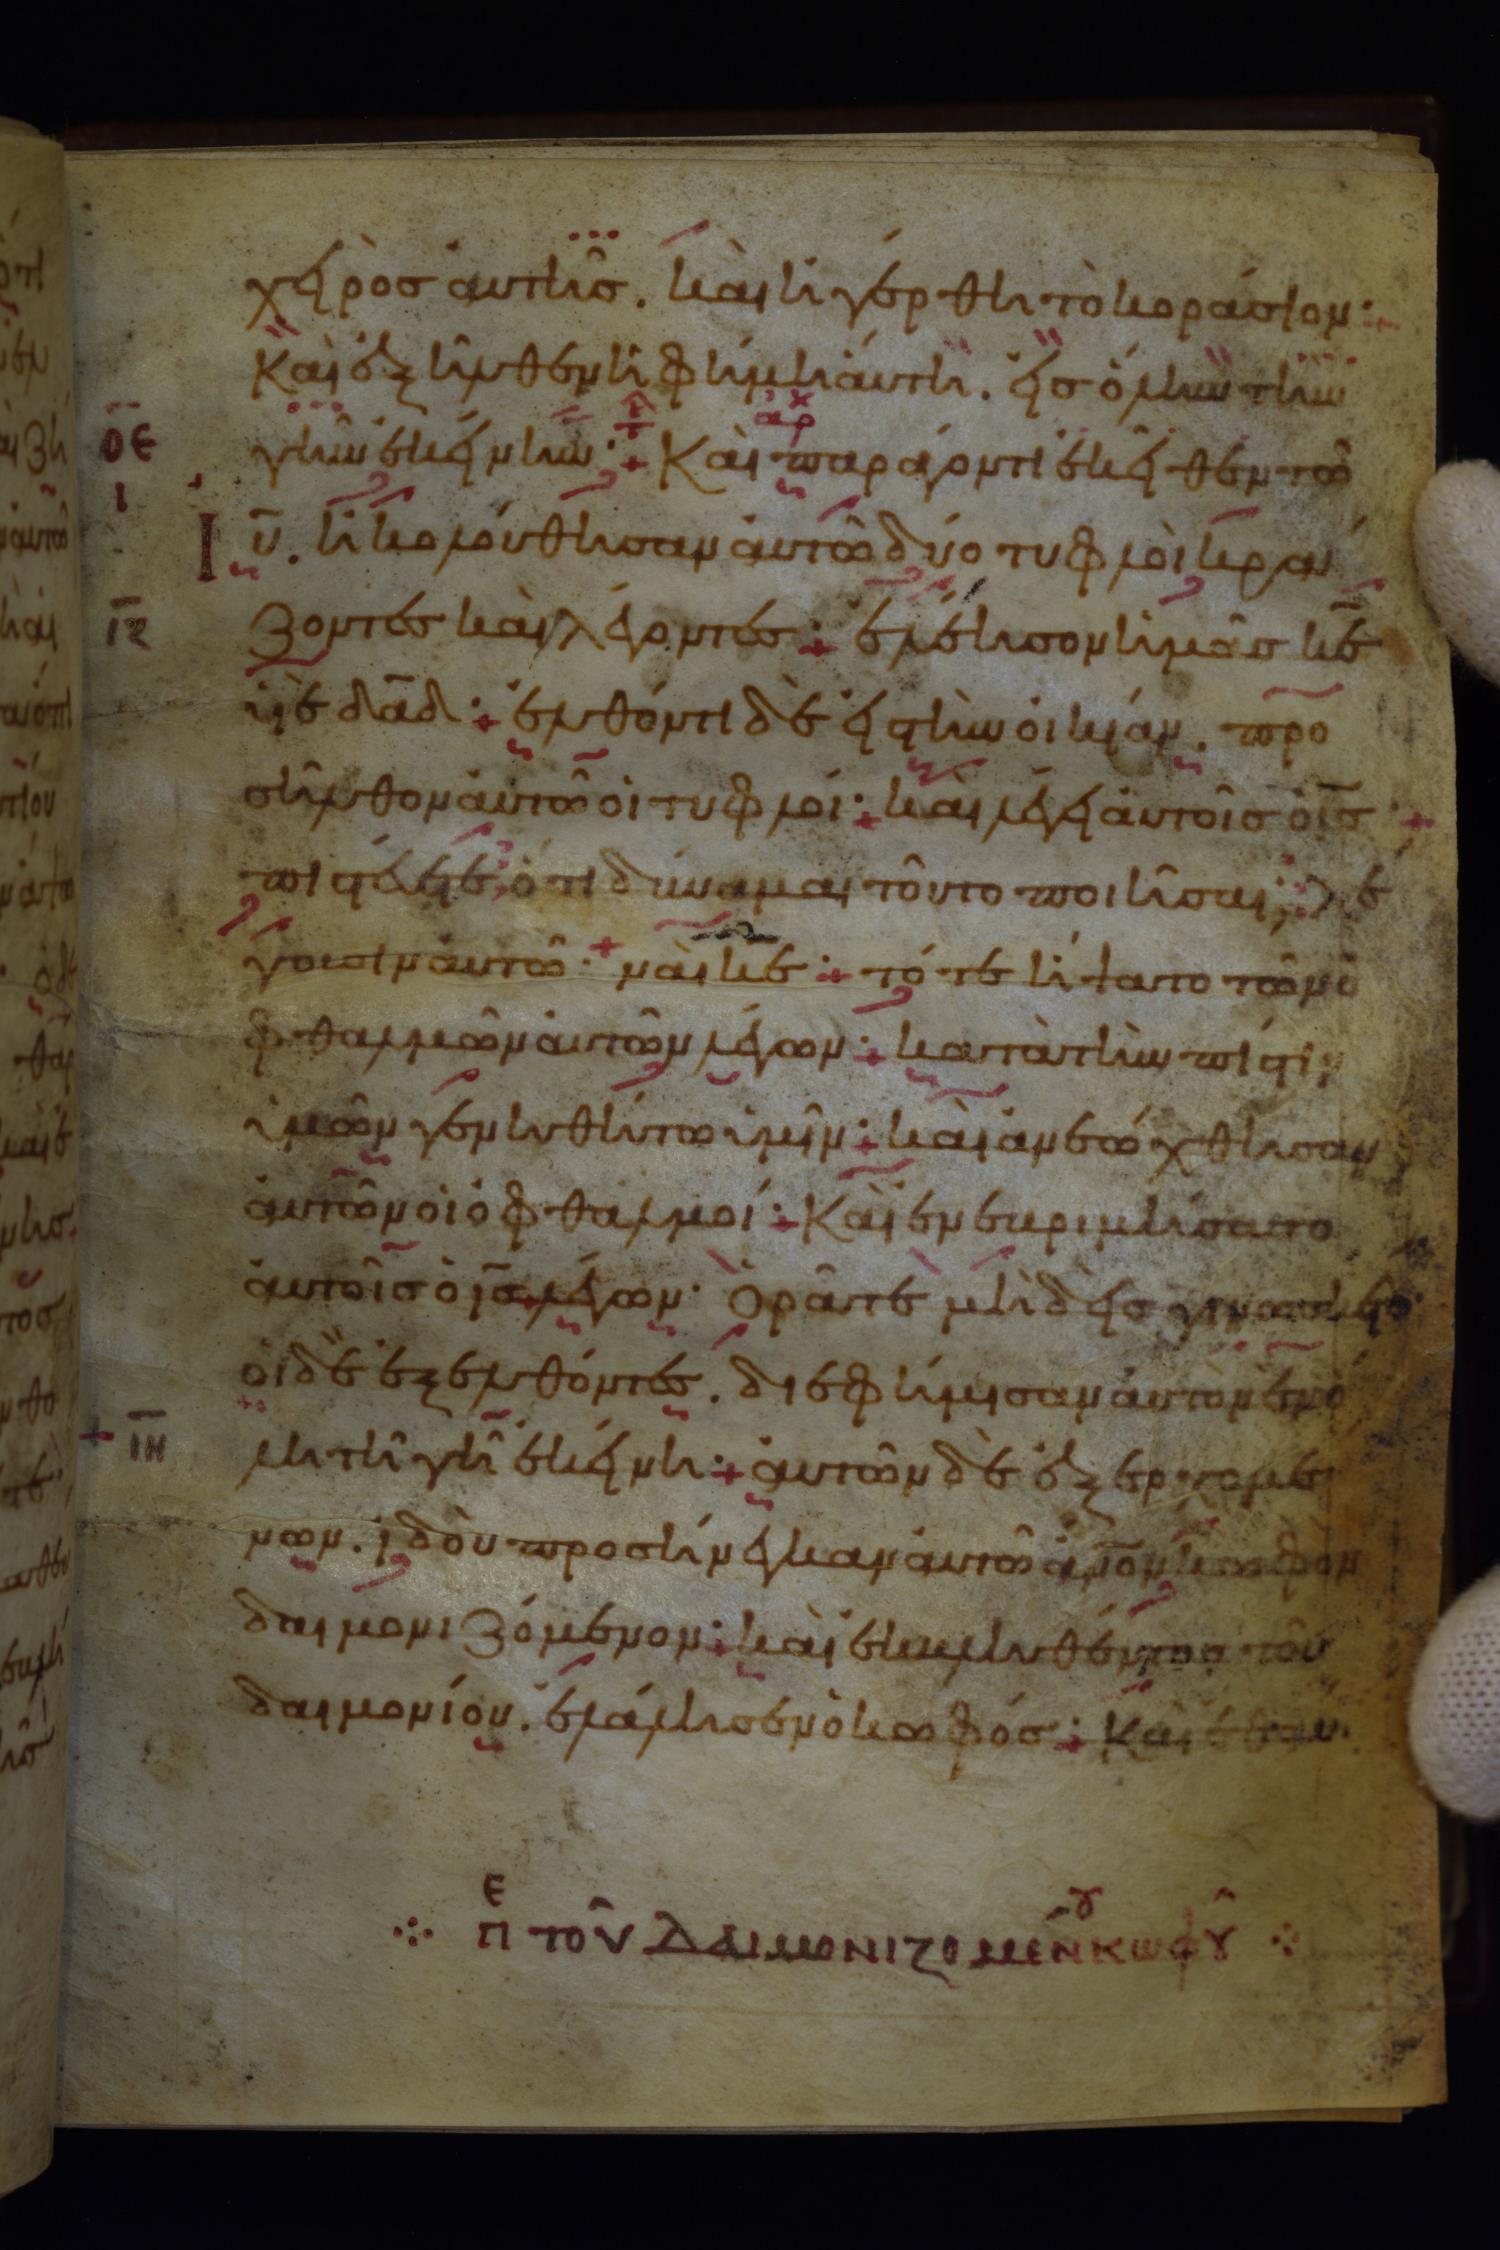 χειρὸς ἀυτῆς. καὶ ἠγέρθη τὸ κοράσιον:
Καὶ ἐξῆλθεν ἡ φήμη ἁύτη. εἰς ὅλην τὴν
ΟΕ γῆν ἐκείνην: + Καὶ παράγοντι ἐκεῖθεν τῶ
Ι
ἰυ. ἠκολούθησαν ἀυτῶ δύο τυφλοὶ κρά
Ις ζοντες καὶ λέγοντες: ἐλέησον ἡμᾶς κε
ϊὲ δαδ: ἐλθόντι δὲ εἰς τὴν οἰκίαν. προ
σῆλθον ἀυτῶ οἱ τυφλοί: καὶ λέγει ἀυτοῖς ὁ ις
πιστέυετε ὅτι δύναμαι τοῦτο ποιῆσαι; λέ
γουσιν ἀυτῶ: ναὶ κε: τότε ἥψατο τῶν ὀ
φθαλμῶν ἀυτῶν λέγων: κατὰ τὴν πίστιν
ὑμῶν γενηθήτω ὑμῖν: καὶ ἀνεώχθησαν
ἀυτῶν οἱ ὀφθαλμοί: Καὶ ἐνεβριμήσατο
ἀυτοῖς ὁ ις λέγων: Ὁρᾶτε μηδεὶς γινωσκέτω:
οἱ δὲ ἐξελθόντες. διεφήμισαν ἀυτὸν ἐν ὅ
+ ΙΗ λη τῆ γῆ ἐκείνη: ἀυτῶν δὲ ἐξερχομέ
νων. ἰδοὺ προσήνεγκαν ἀυτῶ ἀνον κωφὸν
δαιμονιζόμενον: καὶ ἐκβληθέντος τοῦ
δαιμονίου. ἐλάλησεν ὁ κωφός: Καὶ ἐθαυ.
Ε
Π τοῦ ΔΑΙΜΟΝΙΖΟΜΕΝου ΚΩΦοῦ